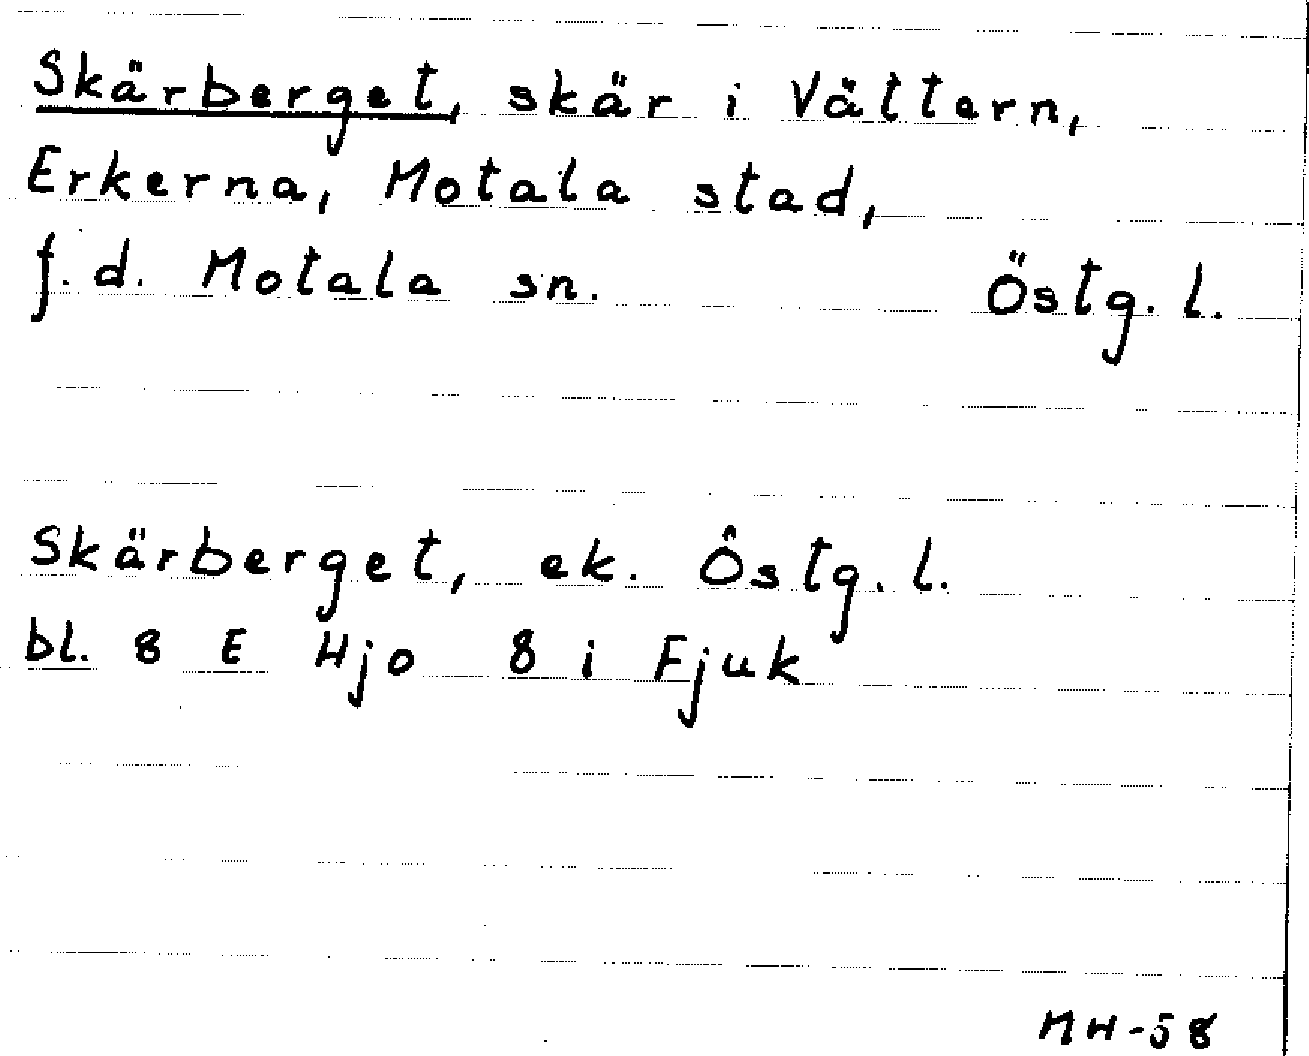 Skärberget, skär i Vättern,
Erkerna, Motala stad,
f.d. Motala sn. Östg. l.
Skärberget, ek. Östg. l.
bl. 8 E Hjo 8 i Fjuk
MH-58